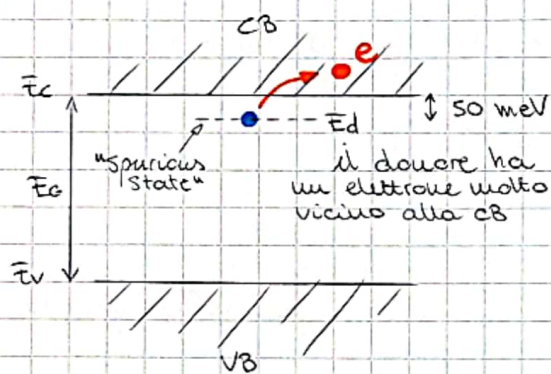 CB
e
Ec
50 meV
Ed
"spurious
state"
il donore ha
un elettrone molto
vicino alla CB
EG
Ev
VB